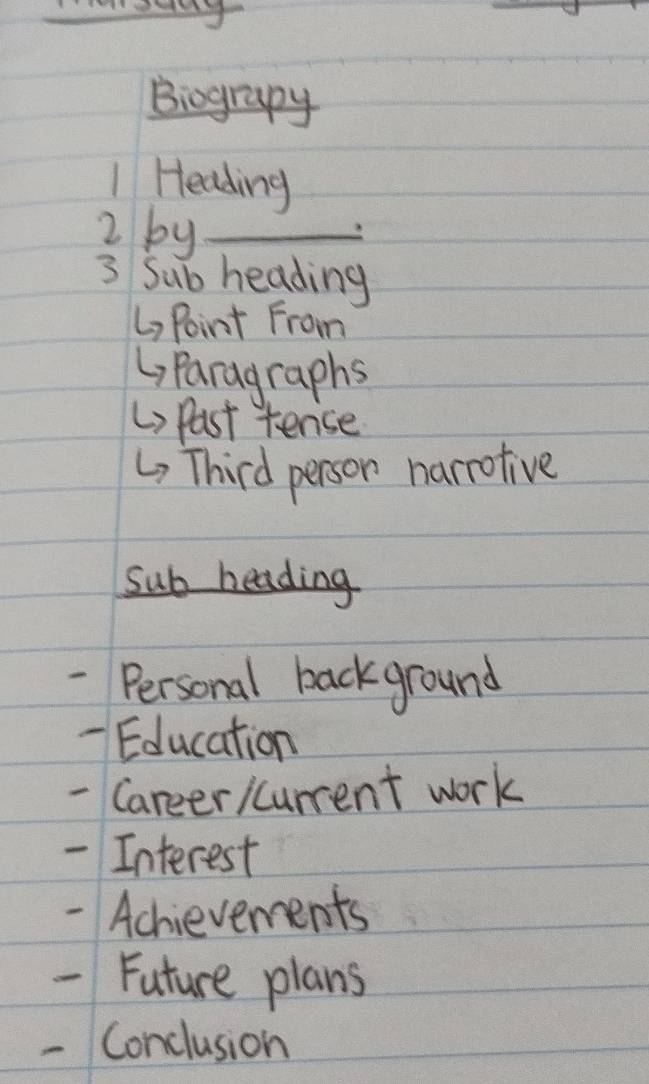 Biograpy
1 Heading
2 by ________.
3 Sub heading
↳ Point From
↳ Paragraphs
↳ Past tense
↳ Third person narrotive
Sub heading
- Personal background
- Education
- Career/current work
- Interest
- Achievements
- Future plans
- Conclusion